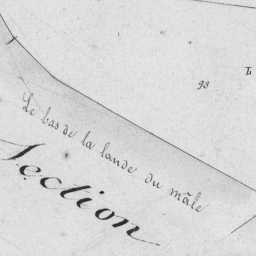 98
Le bas de la lande du mâle
Section